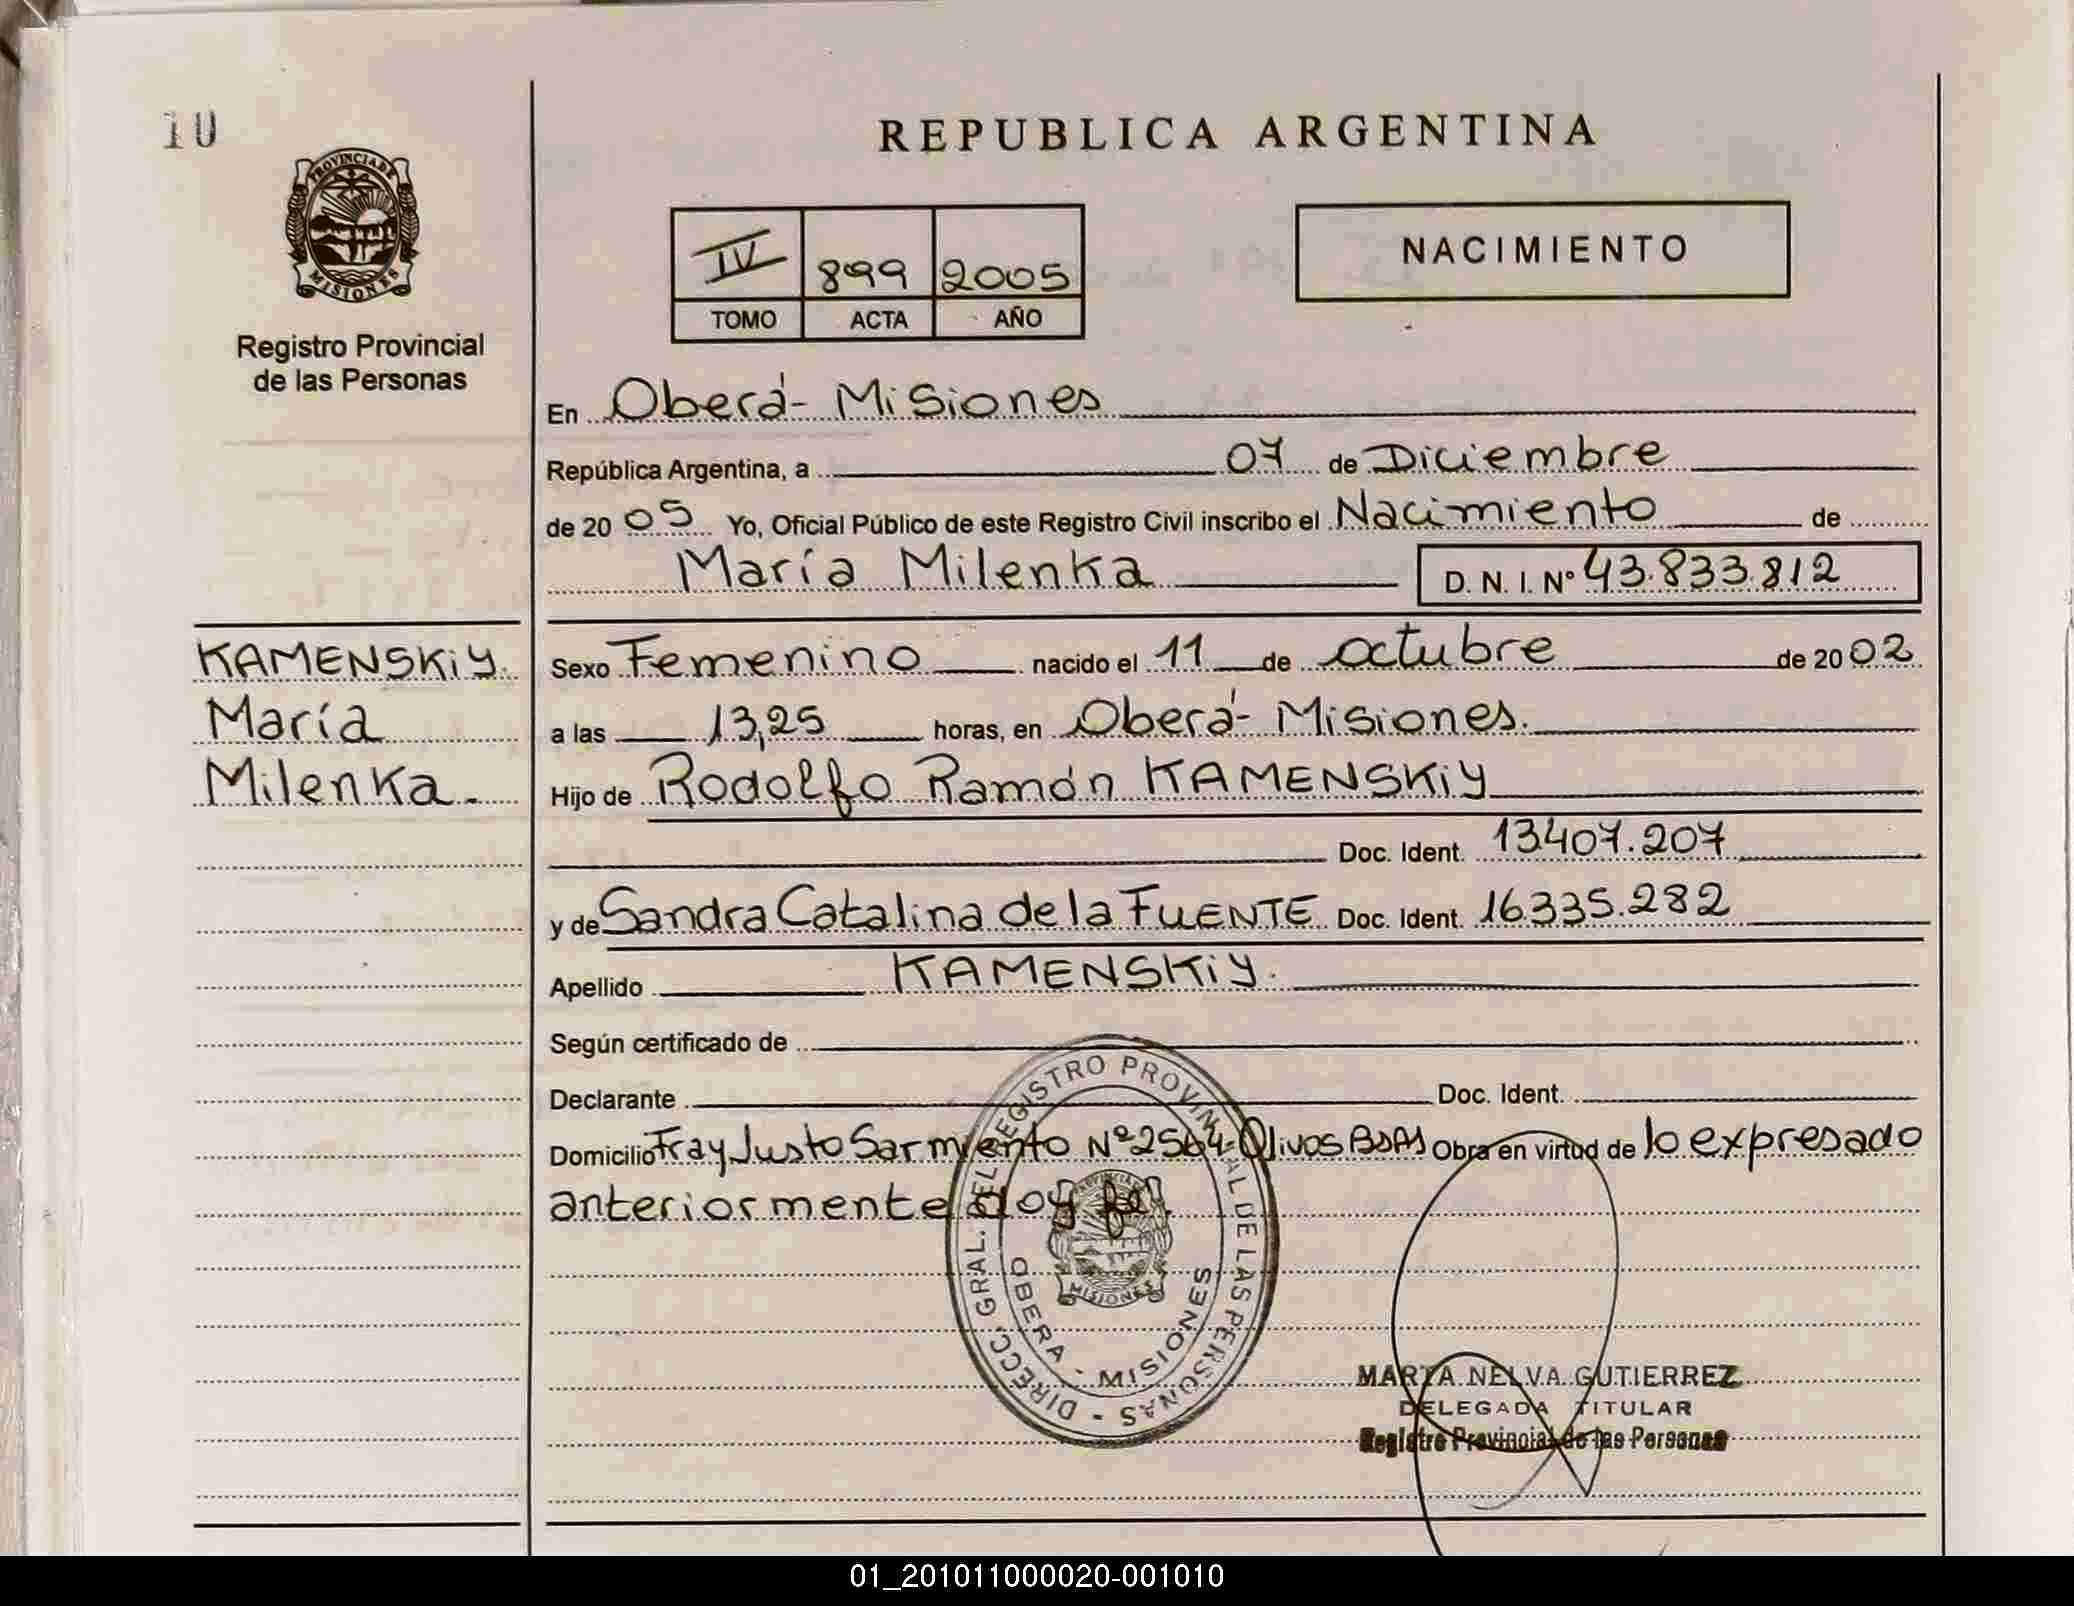 10
PROVINCIA DE
MISIONES
Registro Provincial
de las Personas
REPUBLICA ARGENTINA
IV 899 2005
TOMO ACTA AÑO
NACIMIENTO
En Oberá- Misiones
República Argentina, a 07 de Diciembre
de 20 05 Yo, Oficial Público de este Registro Civil inscribo el Nacimiento de
María Milenka D. N. I. Nº 43.833.812
KAMENSKiY.
María
Milenka.
Sexo Femenino nacido el 11 de octubre de 20 02
a las 13,25 horas, en Oberá- Misiones.
Hijo de Rodolfo Ramón KAMENSKiY
Doc. Ident. 13407.207
y de Sandra Catalina de la FUENTE Doc. Ident. 16.335.282
Apellido KAMENSKiY.
Según certificado de
Declarante Doc. Ident.
Domicilio Fray Justo Sarmiento Nº 2564-Olivos BsAs Obra en virtud de lo expresado
anteriormente doy fe.
DIRECC. GRAL. DEL REGISTRO PROVINCIAL DE LAS PERSONAS -
OBERA - MISIONES
MISIONES
MARTA NELVA GUTIERREZ
DELEGADA TITULAR
Registro Provincial de las Personas
01_201011000020-001010